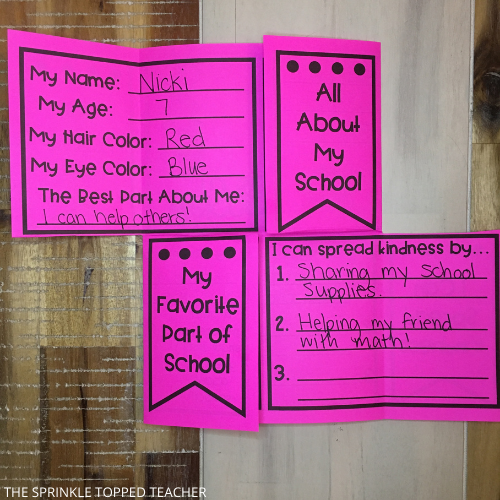 My Name: Nicki
My Age: 7
My Hair Color: Red
My Eye Color: Blue
The Best Part About Me:
I can help others!
All
About
My
School
My
Favorite
Part of
School
I can spread kindness by...
1. Sharing my School
Supplies.
2. Helping my friend
with math!
3.
THE SPRINKLE TOPPED TEACHER